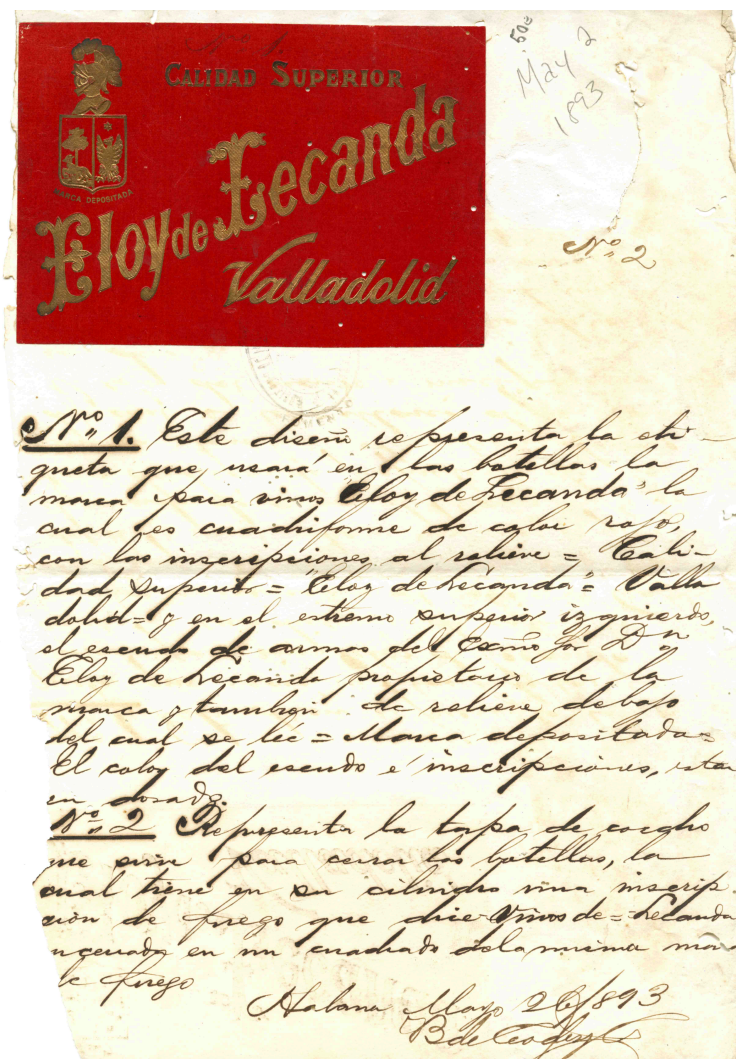 CALIDAD SUPERIOR
Eloy de Lecanda
Valladolid
MARCA DEPOSITADA
50¢
May 2
1893
Nº 2
Nº 1. Este diseño representa la eti-
queta que usará en las botellas la
marca para vinos "Eloy de Lecanda" la
cual es cuadriforme de color rojo,
con las inscripciones al relieve = Cali-
dad superior = "Eloy de Lecanda" = Valla
dolid = y en el estremo superior izquierdo,
el escudo de armas del Exmo Sor Dn
Eloy de Lecanda propietario de la
marca y tambien de relieve debajo
del cual se lée = Marca depositada =
El color del escudo é inscripciones, esta
en dorado.
Nº 2 Representa la tapa de corcho
que sirve para cerrar las botellas, la
cual tiene en su cilindro una inscrip-
cion de fuego que dice Vinos de = Lecanda
ncerrada en un cuadrado de la misma mar
de fuego
Habana Mayo 2 de 1893
B de